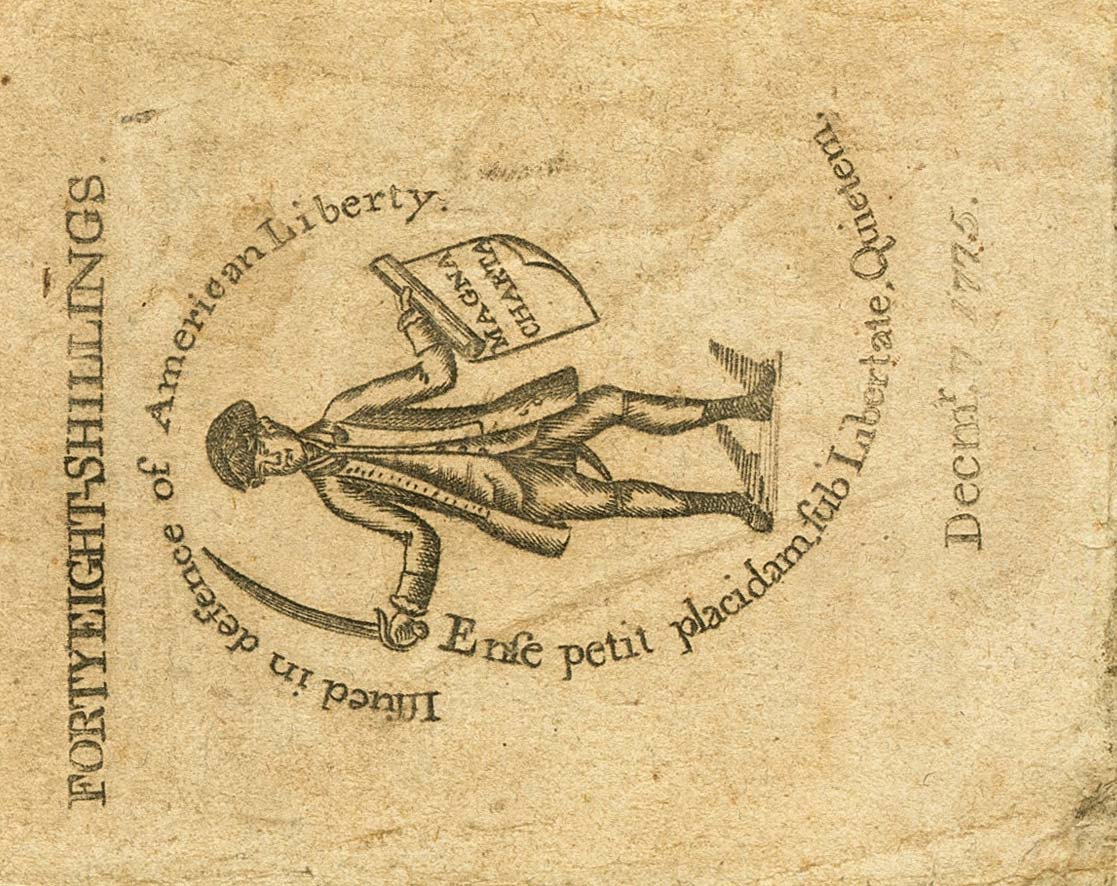 FORTY EIGHT-SHILLINGS.
Iſſued in defence of American Liberty.
MAGNA
CHARTA
Enſe petit placidam, ſub Libertate, Quietem.
Decmr. 7 1775.